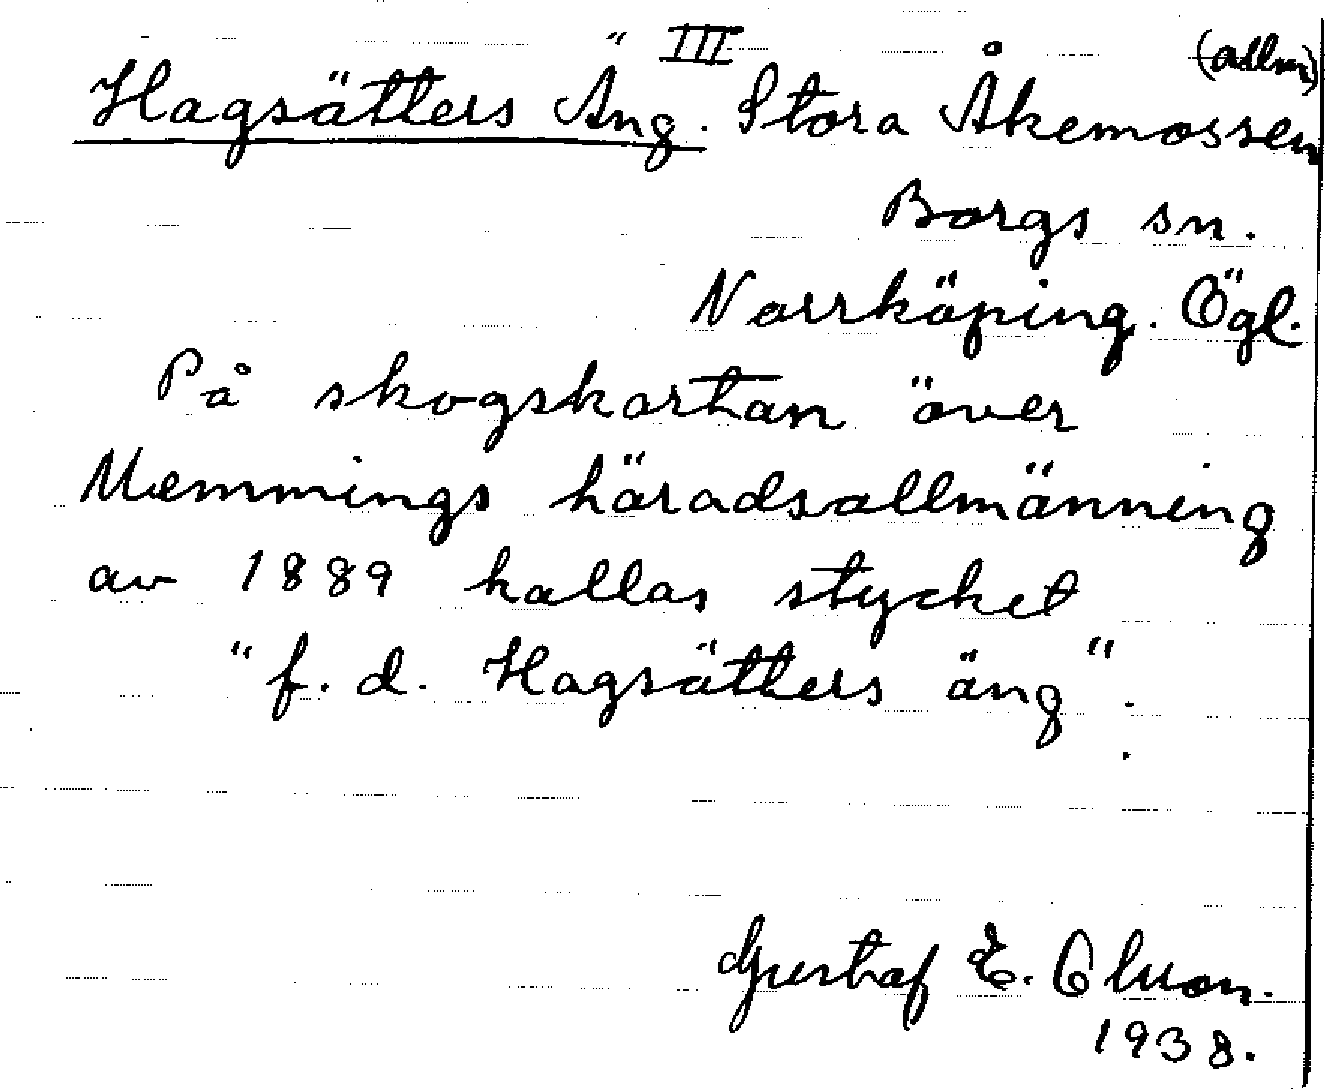 III (allm)
Hagsätters Äng. Stora Åkemossen
Borgs sn.
Norrköping. Ögl.
På skogskartan över
Memmings häradsallmänning
av 1889 kallas stycket
"f. d. Hagsätters äng".
Gustaf E.
1938.